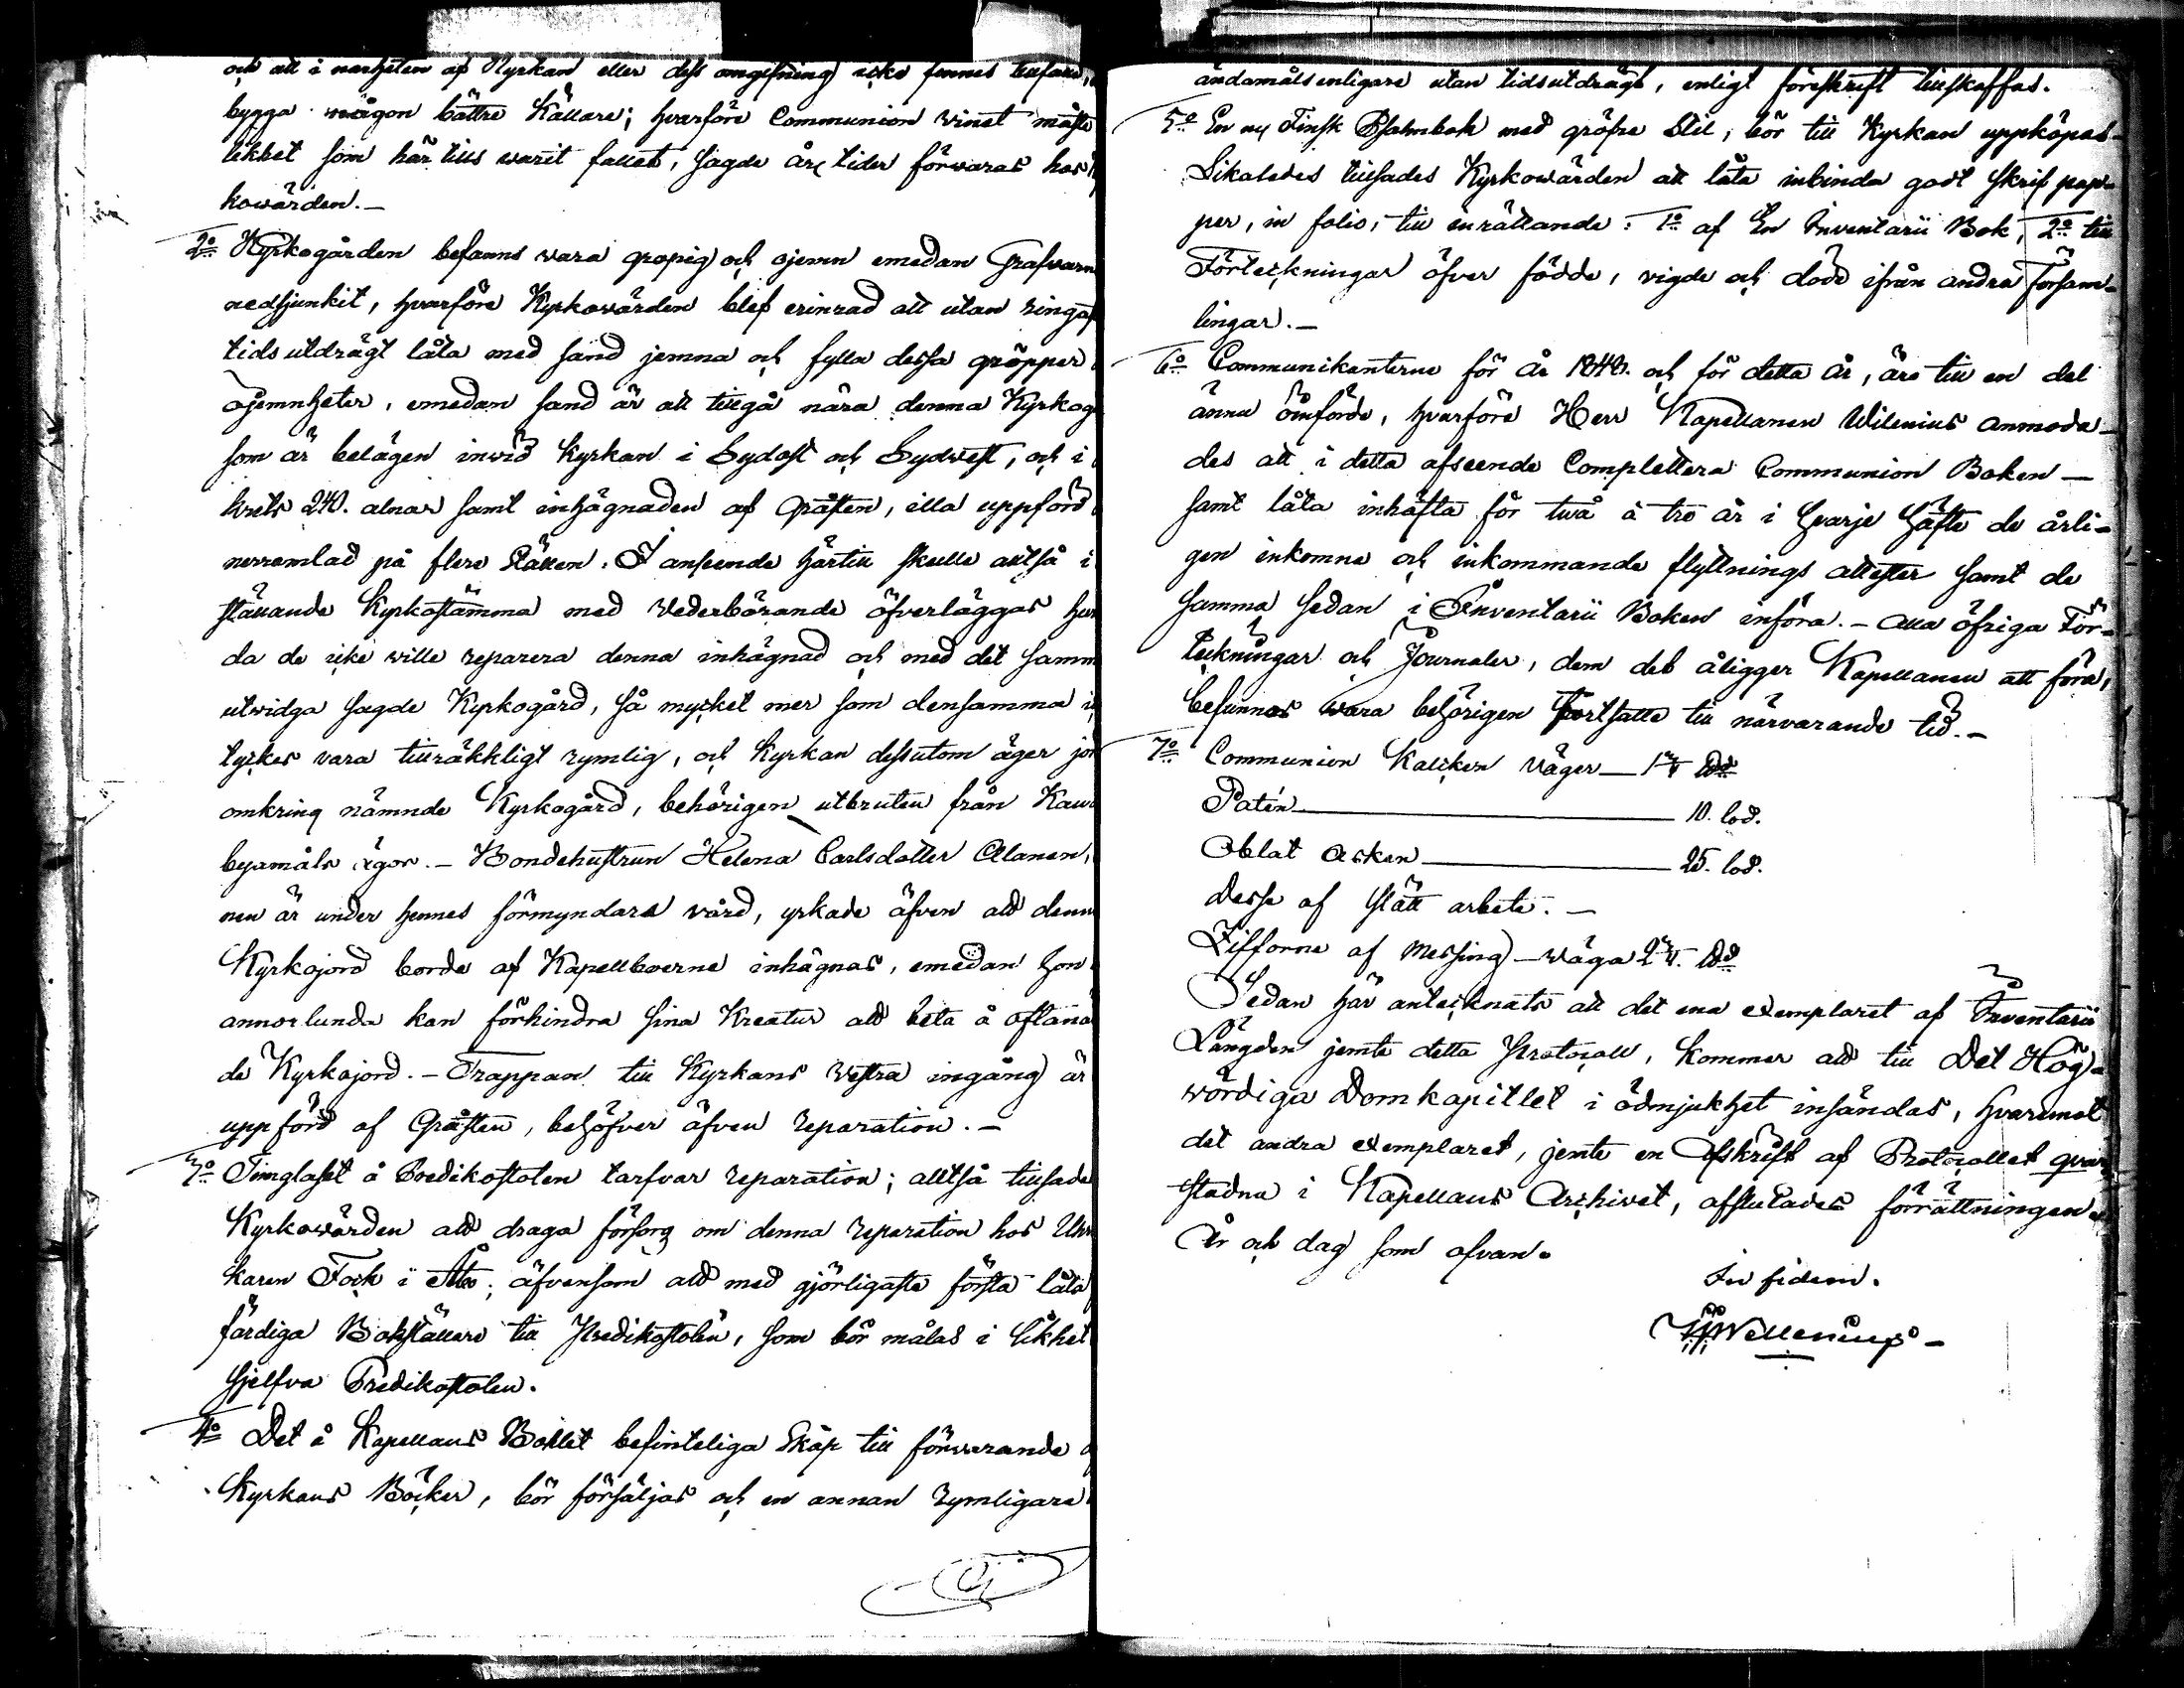 och att i närheten af Kyrkan eller dess omgifning icke finnes
bygga någon bättre Källare; hvarföre Communion Vinet måste
likhet som här tills warit fallet, sagde års tider förwaras hos
kowärden.—
2o Kyrkogården befanns vara gropig och ojemn emedan Grafvarn
nedsjunkit, hvarföre Kyrkowärden blef erinrad att utan ringa
tids utdrägt låta med sand jemna och fylla dessa gropper
ojemnheter, emedan sand är att tillgå nära denna Kyrkog
som är belägen inwid Kyrkan i Sydost och Sydvest, och i
krets 240. alnar samt inhägnaden af Gråsten, illa uppförd
nerramlad på flere Ställen. I anseende härtill skulle altså i
ställande Kyrkostämma med Vederbörande öfverläggas hu
da de icke wille reparera denna inhägnad och med det samm
utvidga sagde Kyrkogård, så mycket mer som densamma i
tyckes vara tillräckkligt rymlig, och Kyrkan dessutom äger jor
omkring nämnde Kyrkogård, behörigen utbruten från Kau
byamåls ägor.— Bondehustrun Helena Carlsdotter Alanen,
nen är under hennes förmyndara vård, yrkade äfven att denn
Kyrkojord borde af Kapellboerne inhägnas, emedan hon
annorlunda kan förhindra sina Kreatur att beta å oftanä
de Kyrkojord.— Trappan till Kyrkans Vestra ingång är
uppförd af Gråsten, behöfver äfven reparation.—
3o Timglaset å Predikostolen tarfvar reparation; alltså tillsade
Kyrkowärden att draga försorg om denna reparation hos Urm
karen Fock i Åbo; äfvensom att med gjörligaste första låta
färdiga Bokställare till Predikostolen, som bör målas i likhet
sjelfva Predikostolen.
4o Det å Kapellans Bollet befinteliga Skåp till förwarande
Kyrkans Böcker, bör försäljas och en annan rymligare
ändamålsenligare utan tidsutdrägt, enligt föreskrift tillskaffas.
5o En ny Finsk Psalmbok med gröfre Stil, bör till Kyrkan uppköpas
Likaledes tillsades Kyrkowärden att låta inbinda godt skrif pap-
per, in folio, till inrättande: 1o af En Inventarii Bok, 2o till
Förteckningar öfver födde, vigde och döde ifrån andra försam-
lingar.—
6o Communikanterne för år 1848. och för detta år, äro till en del
ännu oinförde, hvarföre Herr Kapellanen Wilenius anmoda-
des att i detta afseende Complettera Communion Boken —
samt låta inhäfta för twå à tre år i hvarje häfte de årli-
gen inkomne och inkommande flyttnings attester samt de
samma sedan i Inventarii Boken införa.— Alla öfriga För-
teckningar och Journaler, dem det åligger Kapellanen att föra,
befunnos wara behörigen fortsatte till närvarande tid.—
7o Communion Kalcken Väger —
Patén — 10. lod.
Oblat Asken — 25. lod.
Desse af slätt arbete.—
Zifforne af Messing — wäga
Sedan här antecknats att det ena exemplaret af Inventarii
Längden jemte detta Protocoll, kommer att till Det Hög-
wördiga Domkapitlet i ödmjukhet insändas, hvaremot
det andra exemplaret, jemte en Afskrift af Protocollet qvar
stadna i Kapellans Archivet, afslutades förrättningen
År och dag som ofvan.
In fidem.